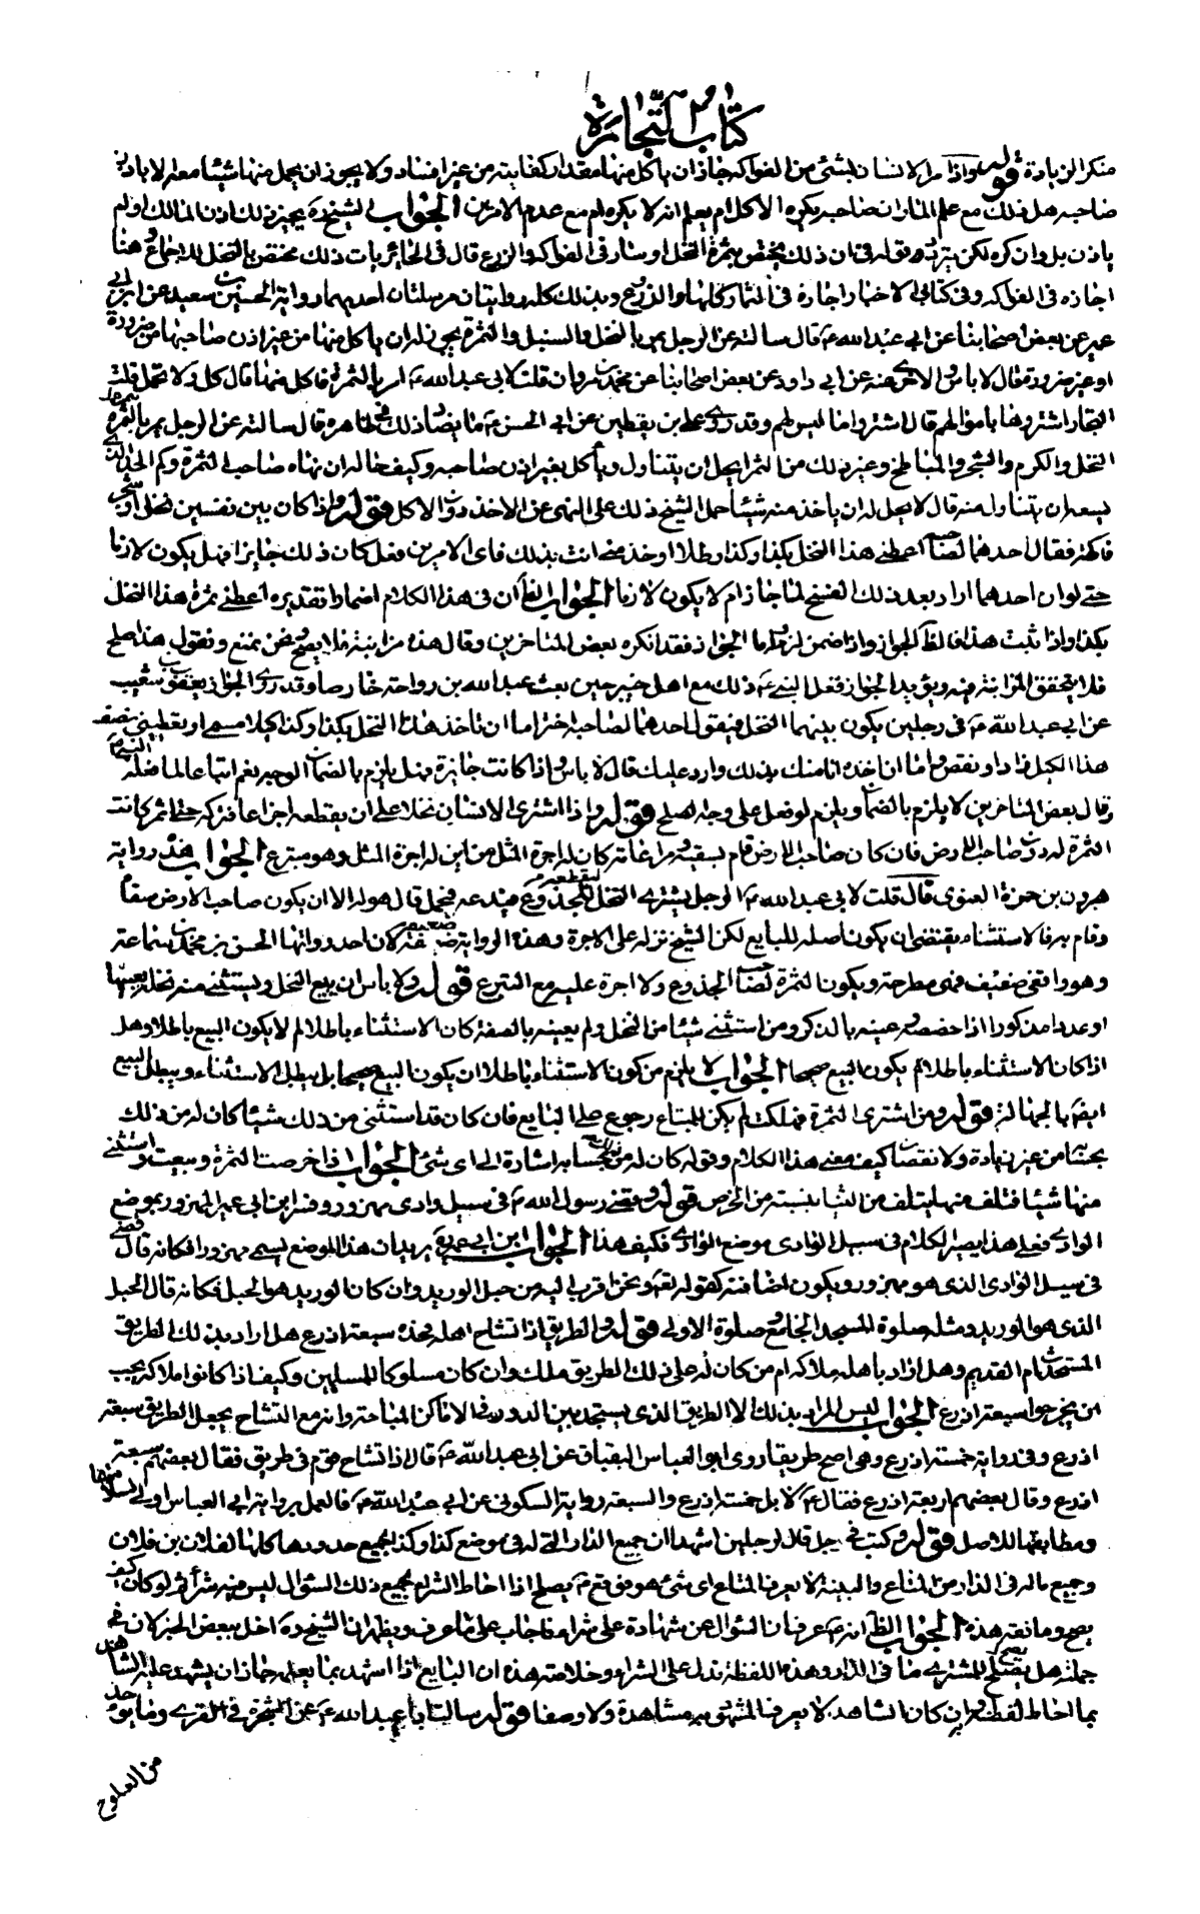 كتاب التجارة
منكر الزيادة قوله واذا مر الانسان بشئ من الفواكه جاز ان ياكل منها مقدار كفايته من غير افساد ولا يجوز ان يحمل منها شيئا معه الا باذن
صاحبه هل ذلك مع علم المار ان صاحبه يكره الاكل ام يعلم انه لا يكره ام مع عدم الامرين الجواب الشيخ ره يجيز ذلك اذن المالك او لم
ياذن بل وان كره لكن يتردد قوله في ان ذلك يختص بثمرة النخل او سار في الفواكه والزرع قال في الحائريات ذلك مختص بالنخل للاجماع وهنا
اجازه في الفواكه وفي كتابي الاخبار اجازه في الثمار كلها والزرع وبذلك كله روايتان مرسلتان احديهما رواية الحسين بن سعيد عن ابن ابي
عمير عن بعض اصحابنا عن ابي عبد الله ع قال سالته عن الرجل يمر بالنخل والسنبل والثمرة يجوز له ان ياكل منها من غير اذن صاحبها من ضرورة
او غير ضرورة قال لا باس والاخرى عنه عن ابي داود عن بعض اصحابنا عن محمد بن مروان قلت لابي عبد الله ع امر بالثمرة فاكل منها قال كل ولا تحمل قلت
التجار اشتروها باموالهم قال اشتروا ما ليس لهم وقد روى علي بن يقطين عن ابي الحسن ع ما يضاد ذلك في ظاهره قال سالته عن الرجل يمر بالثمرة
النخل والكرم والشجر والمباطخ وغير ذلك من الثمر ايحل ان يتناول وياكل بغير اذن صاحبه وكيف حاله ان نهاه صاحب الثمرة وكم الحد الذي
يسعه ان يتناول منه قال لا يحل له ان ياخذ منه شيئا حمل الشيخ ذلك على النهي عن الاخذ دون الاكل قوله واذا كان بين نفسين نخل او شجر
فاكهة فقال احدهما لصاحبه اعطني هذا النخل بكذا وكذا رطلا او خذه مني انت بذلك فاي الامرين فعل كان ذلك جايزا فهل يكون لازما
حتى لو ان احدهما اراد بعد ذلك الفسخ لما جاز ام لا يكون لازما الجواب الظ ان في هذا الكلام اضمارا تقديره اعطني ثمرة هذا النخل
بكذا واذا ثبت هذا فالظ الجواز واذا ضمن لزم واما الجواز فقد انكره بعض المتاخرين وقال هذه مزابنة فلا يصح نحن نمنع ونقول هذا صلح
فلا يتحقق المزابنة فيه ويؤيد الجواز فعل النبي ع ذلك مع اهل خيبر حين بعث عبد الله بن رواحة خارصا وقد روى الجواز يعقوب بن شعيب
عن ابي عبد الله ع في رجلين يكون بينهما النخل فيقول احدهما لصاحبه اختر اما ان تاخذ هذا النخل بكذا وكذا كيلا مسمى او تعطيني نصف
هذا الكيل زاد او نقص واما ان اخذه انا منك بذلك وارد عليك قال لا باس واذا كانت جايزة فهل يلزم بالضمان الوجه نعم اتباعا لما فعله النبي ع
وقال بعض المتاخرين لا يلزم بالضمان ويلزم لو فعل على وجه الصلح قوله واذا اشترى الانسان نخلا على ان يقطعه اجذاعا فتركه حتى اثمر كانت
الثمرة له دون صاحب الارض فان كان صاحب الارض قام بسقيه ومراعاته كان له اجرة المثل من اين له اجرة المثل وهو متبرع الجواب هذه رواية
هرون بن حمزة الغنوي قال قلت لابي عبد الله ع الرجل يشتري النخل ليقطعه للجذوع فيدعه فيحمل قال هو له الا ان يكون صاحب الارض سقاه
وقام به فالاستثناء يقتضي ان يكون اصله للبايع لكن الشيخ نزله على الاجرة وهذه الرواية ضعيفة لان احد رواتها الحسن بن محمد بن سماعة
وهو واقفي ضعيف فهي مطرحة ويكون الثمرة لصاحب الجذوع ولا اجرة عليه مع التبرع قوله ولا باس ان يبيع النخل ويستثني منه نخلة بعينها
او عددا مذكورا اذا خصصه وعينه بالذكر ومن استثنى شيئا من النخل ولم يعينه بالصفة كان الاستثناء باطلا لم لا يكون البيع باطلا وهل
اذا كان الاستثناء باطلا لم يكون البيع صحيحا الجواب لا يلزم من كون الاستثناء باطلا ان يكون البيع صحيحا بل يبطل الاستثناء ويبطل البيع
ايضا بالجهالة قوله ومن اشترى الثمرة فهلكت لم يكن للمبتاع رجوع على البايع فان كان قد استثنى من ذلك شيئا كان له من ذلك
بحسابه من غير زيادة ولا نقصان كيف معنى هذا الكلام وقوله كان له من ذلك بحسابه اشارة الى اي شئ الجواب اذا خرصت الثمرة وبيعت واستثنى
منها شيئا فتلف منها يتلف من الثنيا بنسبته من الخرص قوله وقضى رسول الله ص في سيل وادي مهزور وفسر ابن ابي عمير المهزور بموضع
الوادي فعلى هذا يصير الكلام في سيل الوادي موضع الوادي فكيف هذا الجواب ابن ابي عمير يريد ان هذا الموضع يسمى مهزورا فكانه قال قضى
في سيل الوادي الذي هو مهزور ويكون اضافته كقوله تع ونحن اقرب اليه من حبل الوريد وان كان الوريد هو الحبل فكانه قال الحبل
الذي هو الوريد ومثله صلوة المسجد الجامع وصلوة الاولى قوله والطريق اذا تشاح اهله فحده سبعة اذرع هل اراد بذلك الطريق
المستحدث ام القديم وهل اراد باهله ملاكه ام من كان له على ذلك الطريق ملك وان كان مسلوكا للمسلمين وكيف اذا كانوا ملاكه يجب
ان يخرجوا سبعة اذرع الجواب ليس المراد بذلك الا الطريق الذي يستجد بين الدور في الاماكن المباحة وانه مع التشاح يجعل الطريق سبعة
اذرع وفي رواية خمسة اذرع وهي اصح طريقا روى ابو العباس البقباق عن ابي عبد الله ع قال اذا تشاح قوم في طريق فقال بعضهم سبعة
اذرع وقال بعضهم اربعة اذرع فقال ع لا بل خمسة اذرع والسبعة رواية السكوني عن ابي عبد الله ع فالعمل برواية ابي العباس اولى لسلامتها
ومطابقتها للاصل قوله وكتب في رجل قال لرجلين اشهدا ان جميع الدار التي له في موضع كذا وكذا بجميع حدودها كلها لفلان بن فلان
وجميع ماله في الدار من المتاع والبينة لا يعرف المتاع اي شئ هو فوقع ع يصلح اذا احاط الشراء بجميع ذلك السؤال ليس فيه شراء ثم لو كان كيف
يصح وما فقه هذه الجواب الظ انه ع عرف ان السؤال عن شهادة على شراء فاجاب على ما عرف ويظهر ان الشيخ ره اخل ببعض الخبر لان في
جملته هل يصلح للمشتري ما في الدار وهذه اللفظة تدل على الشراء وخلاصة هذه ان البايع اذا اشهد بما يعلمه جاز ان يشهد عليه الشاهد
بما احاط لفظه به وان كان الشاهد لا يعرف المشهود به مشاهدة ولا وصفا قوله سالت ابا عبد الله ع عن الشجرة في القرى وما يؤخذ
من العلوج